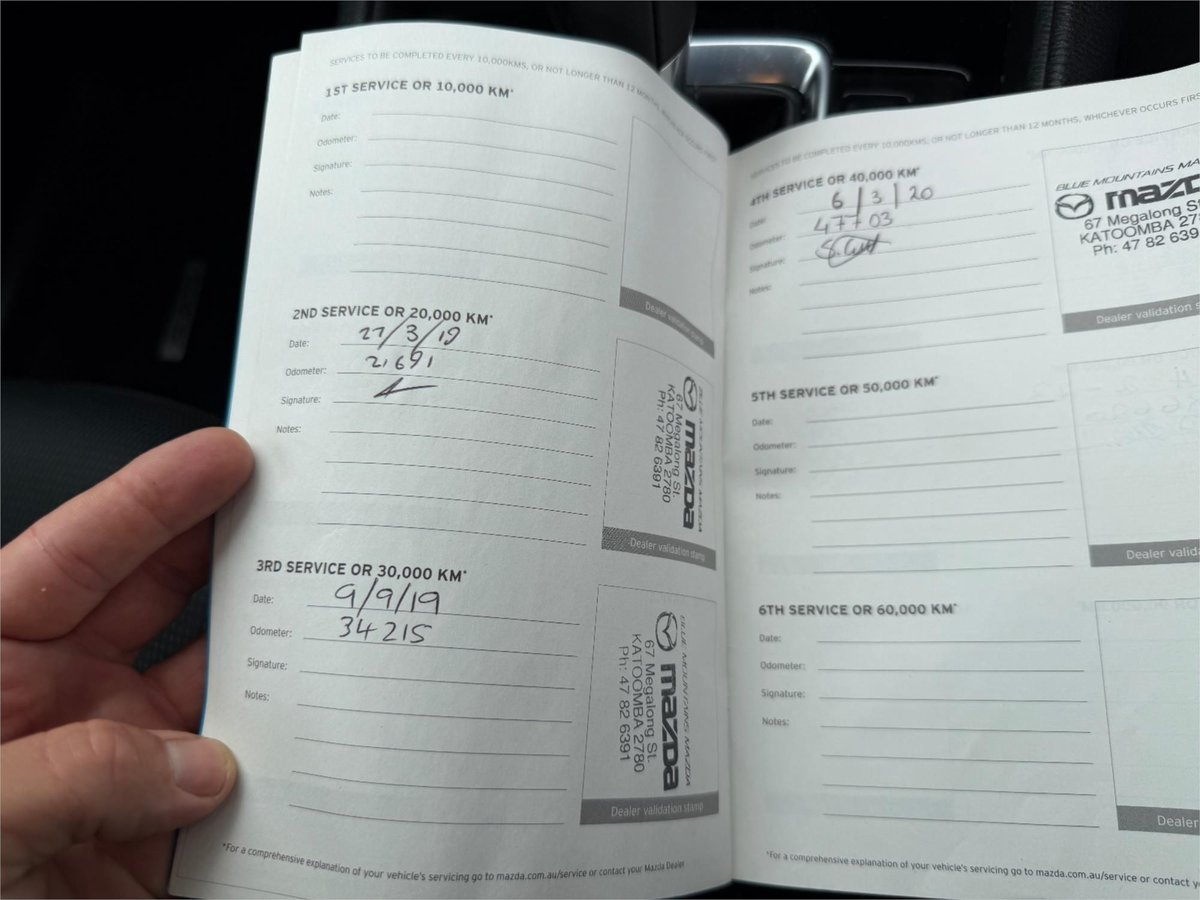 SERVICES TO BE COMPLETED EVERY 10,000KMS, OR NOT LONGER THAN 12 MONTHS, WHICHEVER OCCURS FIRST
1ST SERVICE OR 10,000 KM*
Date:
Odometer:
Signature:
Notes:
Dealer validation stamp
2ND SERVICE OR 20,000 KM*
Date: 27/3/19
Odometer: 21691
Signature:
Notes:
BLUE MOUNTAINS MAZDA
mazda
67 Megalong St.
KATOOMBA 2780
Ph: 47 82 6391
Dealer validation stamp
3RD SERVICE OR 30,000 KM*
Date: 9/9/19
Odometer: 34215
Signature:
Notes:
BLUE MOUNTAINS MAZDA
mazda
67 Megalong St.
KATOOMBA 2780
Ph: 47 82 6391
Dealer validation stamp
*For a comprehensive explanation of your vehicle's servicing go to mazda.com.au/service or contact your Mazda Dealer
SERVICES TO BE COMPLETED EVERY 10,000KMS, OR NOT LONGER THAN 12 MONTHS, WHICHEVER OCCURS FIRS
4TH SERVICE OR 40,000 KM*
Date: 6/3/20
Odometer: 47703
Signature:
Notes:
BLUE MOUNTAINS MA
mazda
67 Megalong St
KATOOMBA 27
Ph: 47 82 639
Dealer validation s
5TH SERVICE OR 50,000 KM*
Date:
Odometer:
Signature:
Notes:
Dealer valida
6TH SERVICE OR 60,000 KM*
Date:
Odometer:
Signature:
Notes:
Dealer
*For a comprehensive explanation of your vehicle's servicing go to mazda.com.au/service or contact y